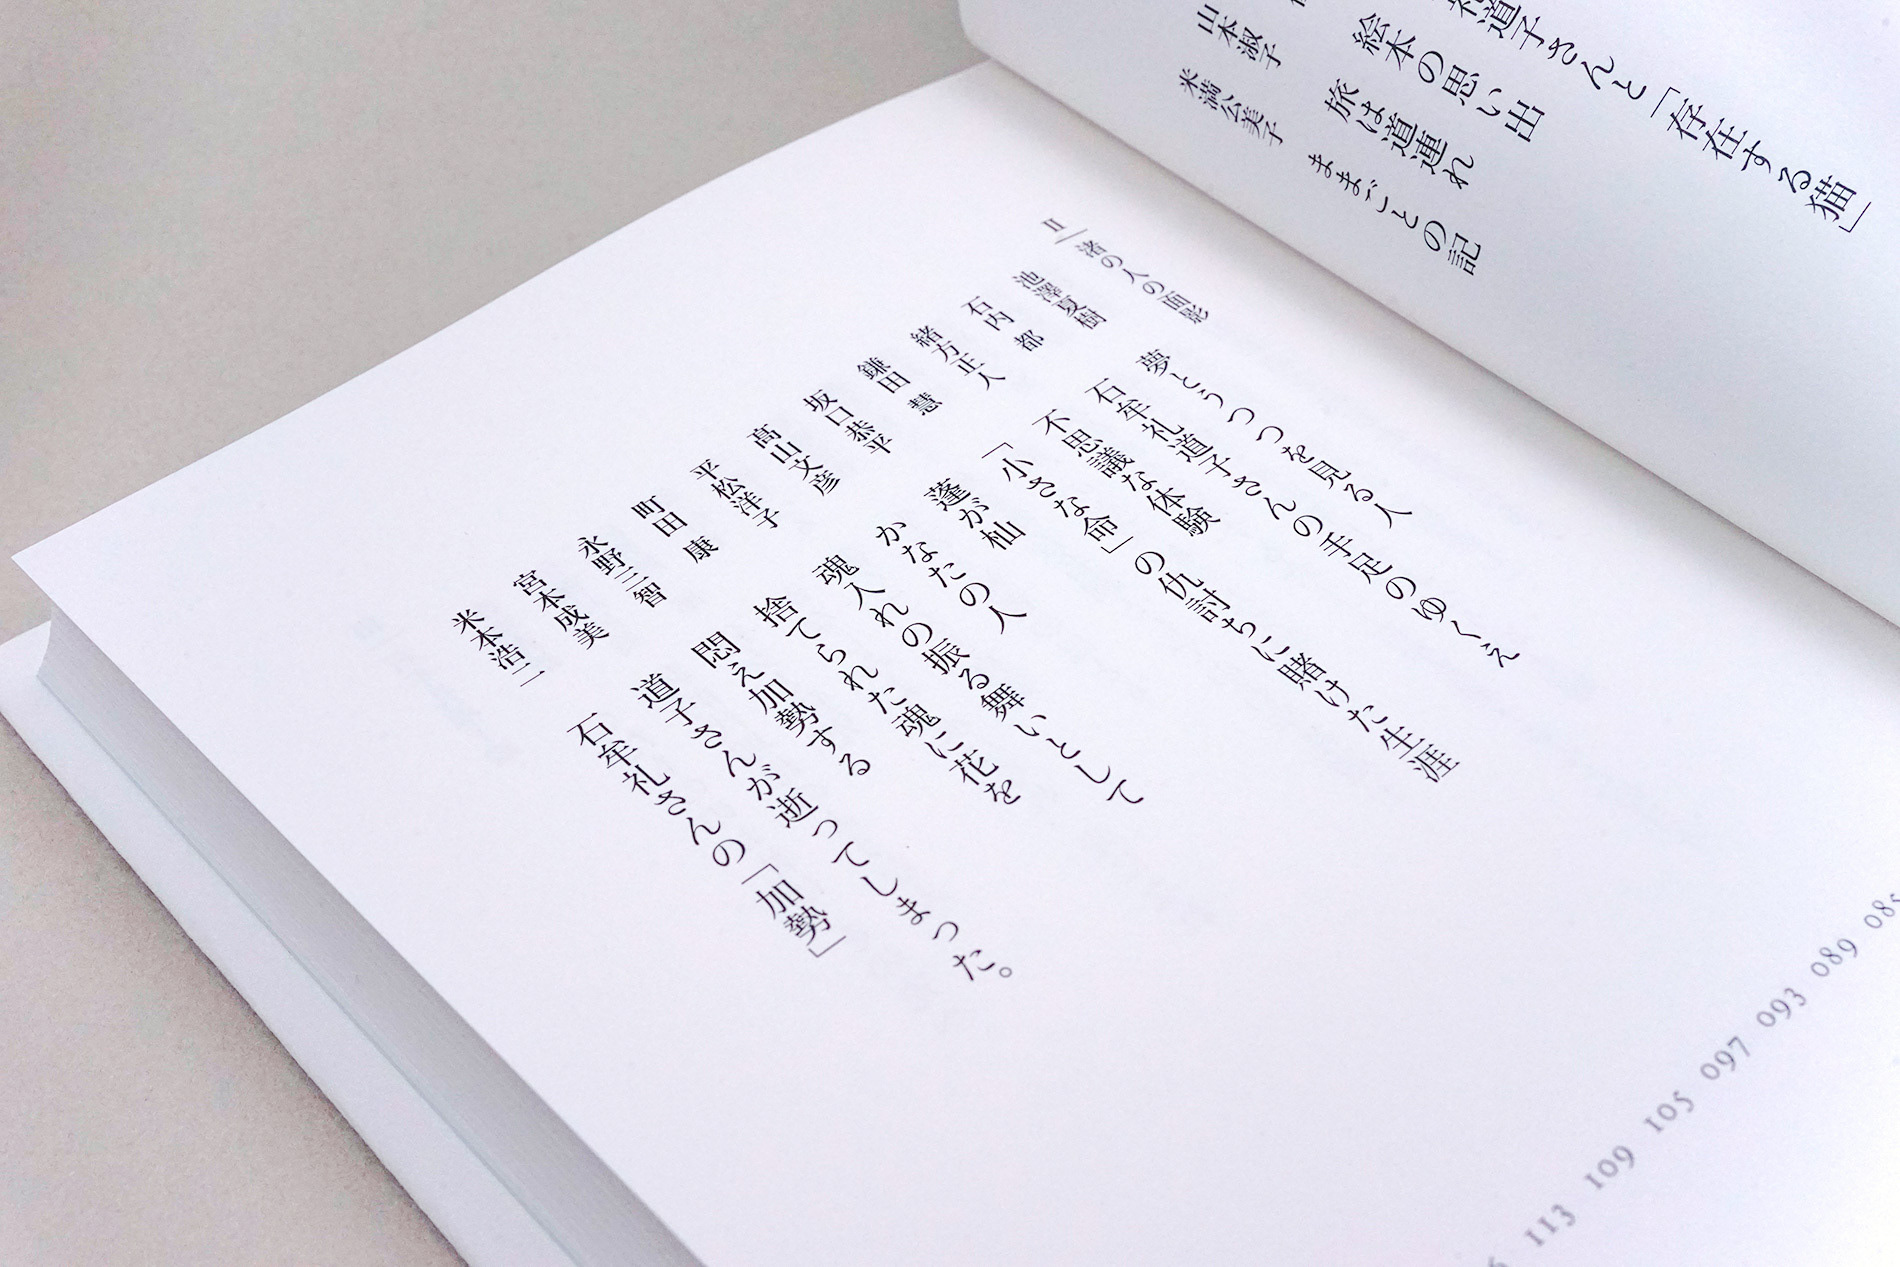 礼道子さんと「存在する猫」
絵本の思い出
山本淑子 旅は道連れ
米満公美子 ままごとの記
II／渚の人の面影
池澤夏樹 夢とうつつを見る人
石内 都 石牟礼道子さんの手足のゆくえ
緒方正人 不思議な体験
鎌田 慧 「小さな命」の仇討ちに賭けた生涯
坂口恭平 蓬が杣
髙山文彦 かなたの人
平松洋子 魂入れの振る舞いとして
町田 康 捨てられた魂に花を
永野三智 悶え加勢する
宮本成美 道子さんが逝ってしまった。
米本浩二 石牟礼さんの「加勢」
085
089
093
097
105
109
113